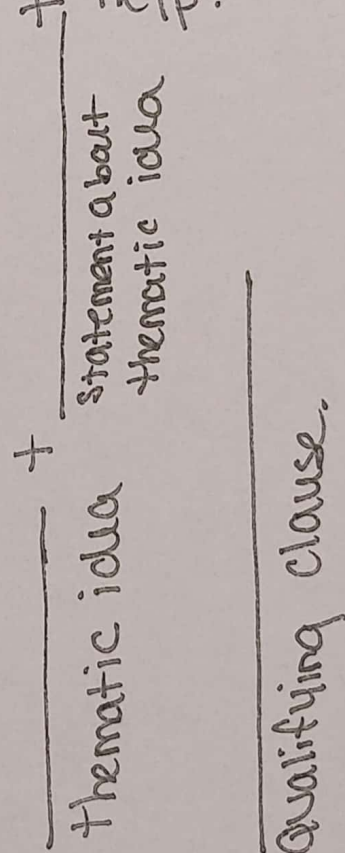 ____ + ____ +
Thematic idea statement about
thematic idea
____
Qualifying clause.